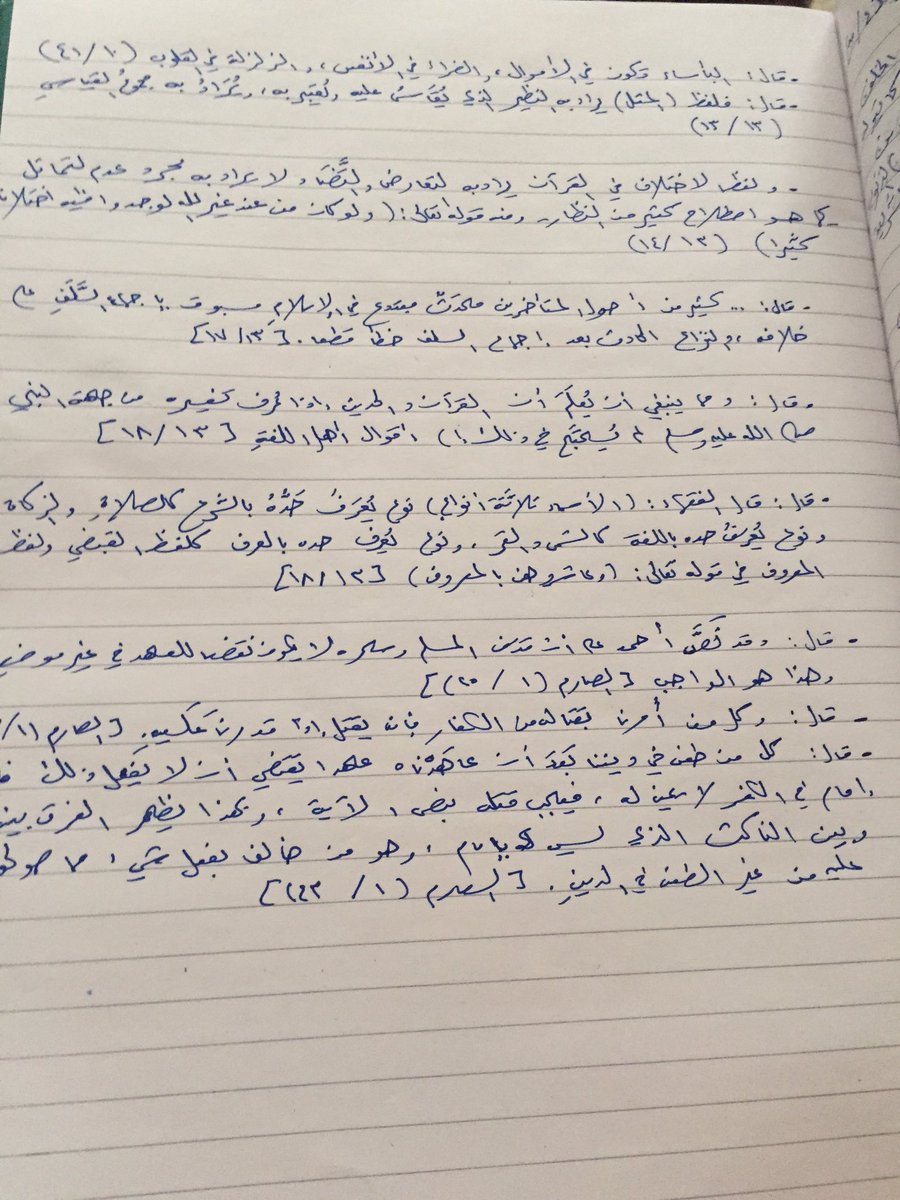 - قال: البأساء تكون في الأموال، والضراء في الأنفس، والزلزلة في القلوب (٤١/١٠)
- قال: فلفظ (المثل) يراد به النظير الذي يُقَاسُ عليه ويُعتبر به، ويُرَادُ به مجموعُ القياسِ
(١٣/١٣)
- ولفظ الاختلاف في القرآن يراد به التعارض والتَّضَاد ولا يراد به مجرد عدم التماثل
كما هو اصطلاح كثير من النظار، ومنه قوله تعالى: (ولو كان من عند غير الله لوجدوا فيه اختلافا
كثيرا) (١٤/١٣)
- قال: ... كثير من أصول المتأخرين محدَثٌ مبتدع في الإسلام مسبوق بإجماع السَّلَفِ على
خلافه، والنزاع الحادث بعد إجماع السلف خطأ قطعا. [١٧/١٣]
- وقال: ومما ينبغي أن يُعلَمَ أن القرآن والحديث إذا عُرف تفسيره من جهة النبي
صلى الله عليه وسلم لم يُحتَج في ذلك إلى أقوال أهل اللغةِ [١٨/١٣]
- قال: قال الفقهاء: (الأسماء ثلاثَة أنواع) نوع يُعرَفُ حَدُّهُ بالشرع كالصلاةِ والزكاة
ونوع يُعرَفُ حده باللغة كالشمس والقمر، ونوع يُعرفُ حده بالعرف كلفظ القبض ولفظ
المعروف في قوله تعالى: (وعاشروهن بالمعروف) [١٨/١٣]
- قال: وقد نَصَّ أحمد على أن قذف المسلم وسحره لا يكون نقضا للعهد في غير موضع
وهذا هو الواجب [الصارم (١ / ٢٥)]
- قال: وكل من أُمرنا بقتاله من الكفار فإنه يقتل إذا قدرنا عليه. [الصارم (١/
- قال: كل من طعن في ديننا بَعدَ أن عاهَدْناه عهدا يقتضي أن لا يفعل ذلك
إمام في الكفر لا يمين له، فيجب قتله بنص الآية، وبهذا يظهر الفرق بينه
وبين الناكث الذي ليس بإمام، وهو من خالف بفعل شيء مما صولح
عليه من غير الطعن في الدينِ. [الصارم (١ /